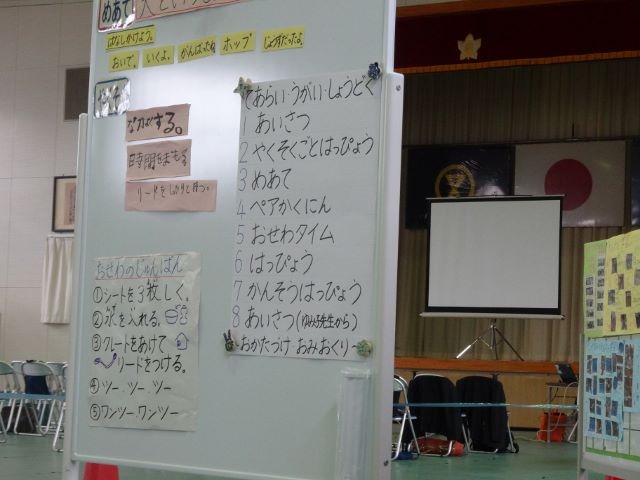 めあて
はなしかけよう。
おいで。 いくよ。 がんばったね ホップ じょうずだったよ。
やくそく
なかよくする。
時間をまもる
リードをしっかりと持つ。
てあらい・うがい・しょうどく
1 あいさつ
2 やくそくごとはっぴょう
3 めあて
4 ペアかくにん
5 おせわタイム
6 はっぴょう
7 かんそうはっぴょう
8 あいさつ(ゆみ子先生から)
おかたづけ おみおくり
おせわのじゅんばん
①シートを3枚しく。
②水を入れる。
③クレートをあけて
リードをつける。
④ツー ツー ツー
⑤ワンツー ワンツー